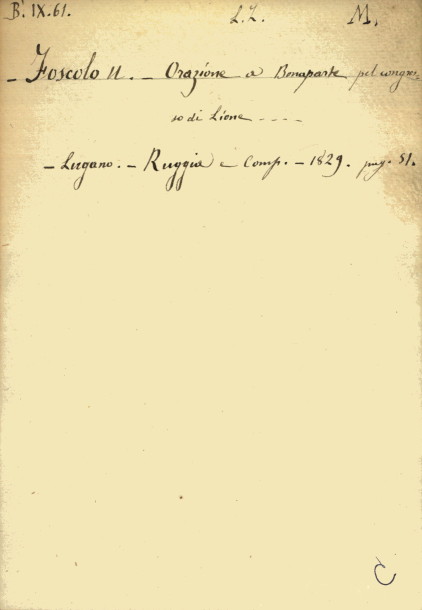 B. IX. 61. L. Z. M.
- Foscolo U. - Orazione a Bonaparte pel congres-
so di Lione ----
- Lugano. - Ruggia e Comp. - 1829. pag. 51.
C